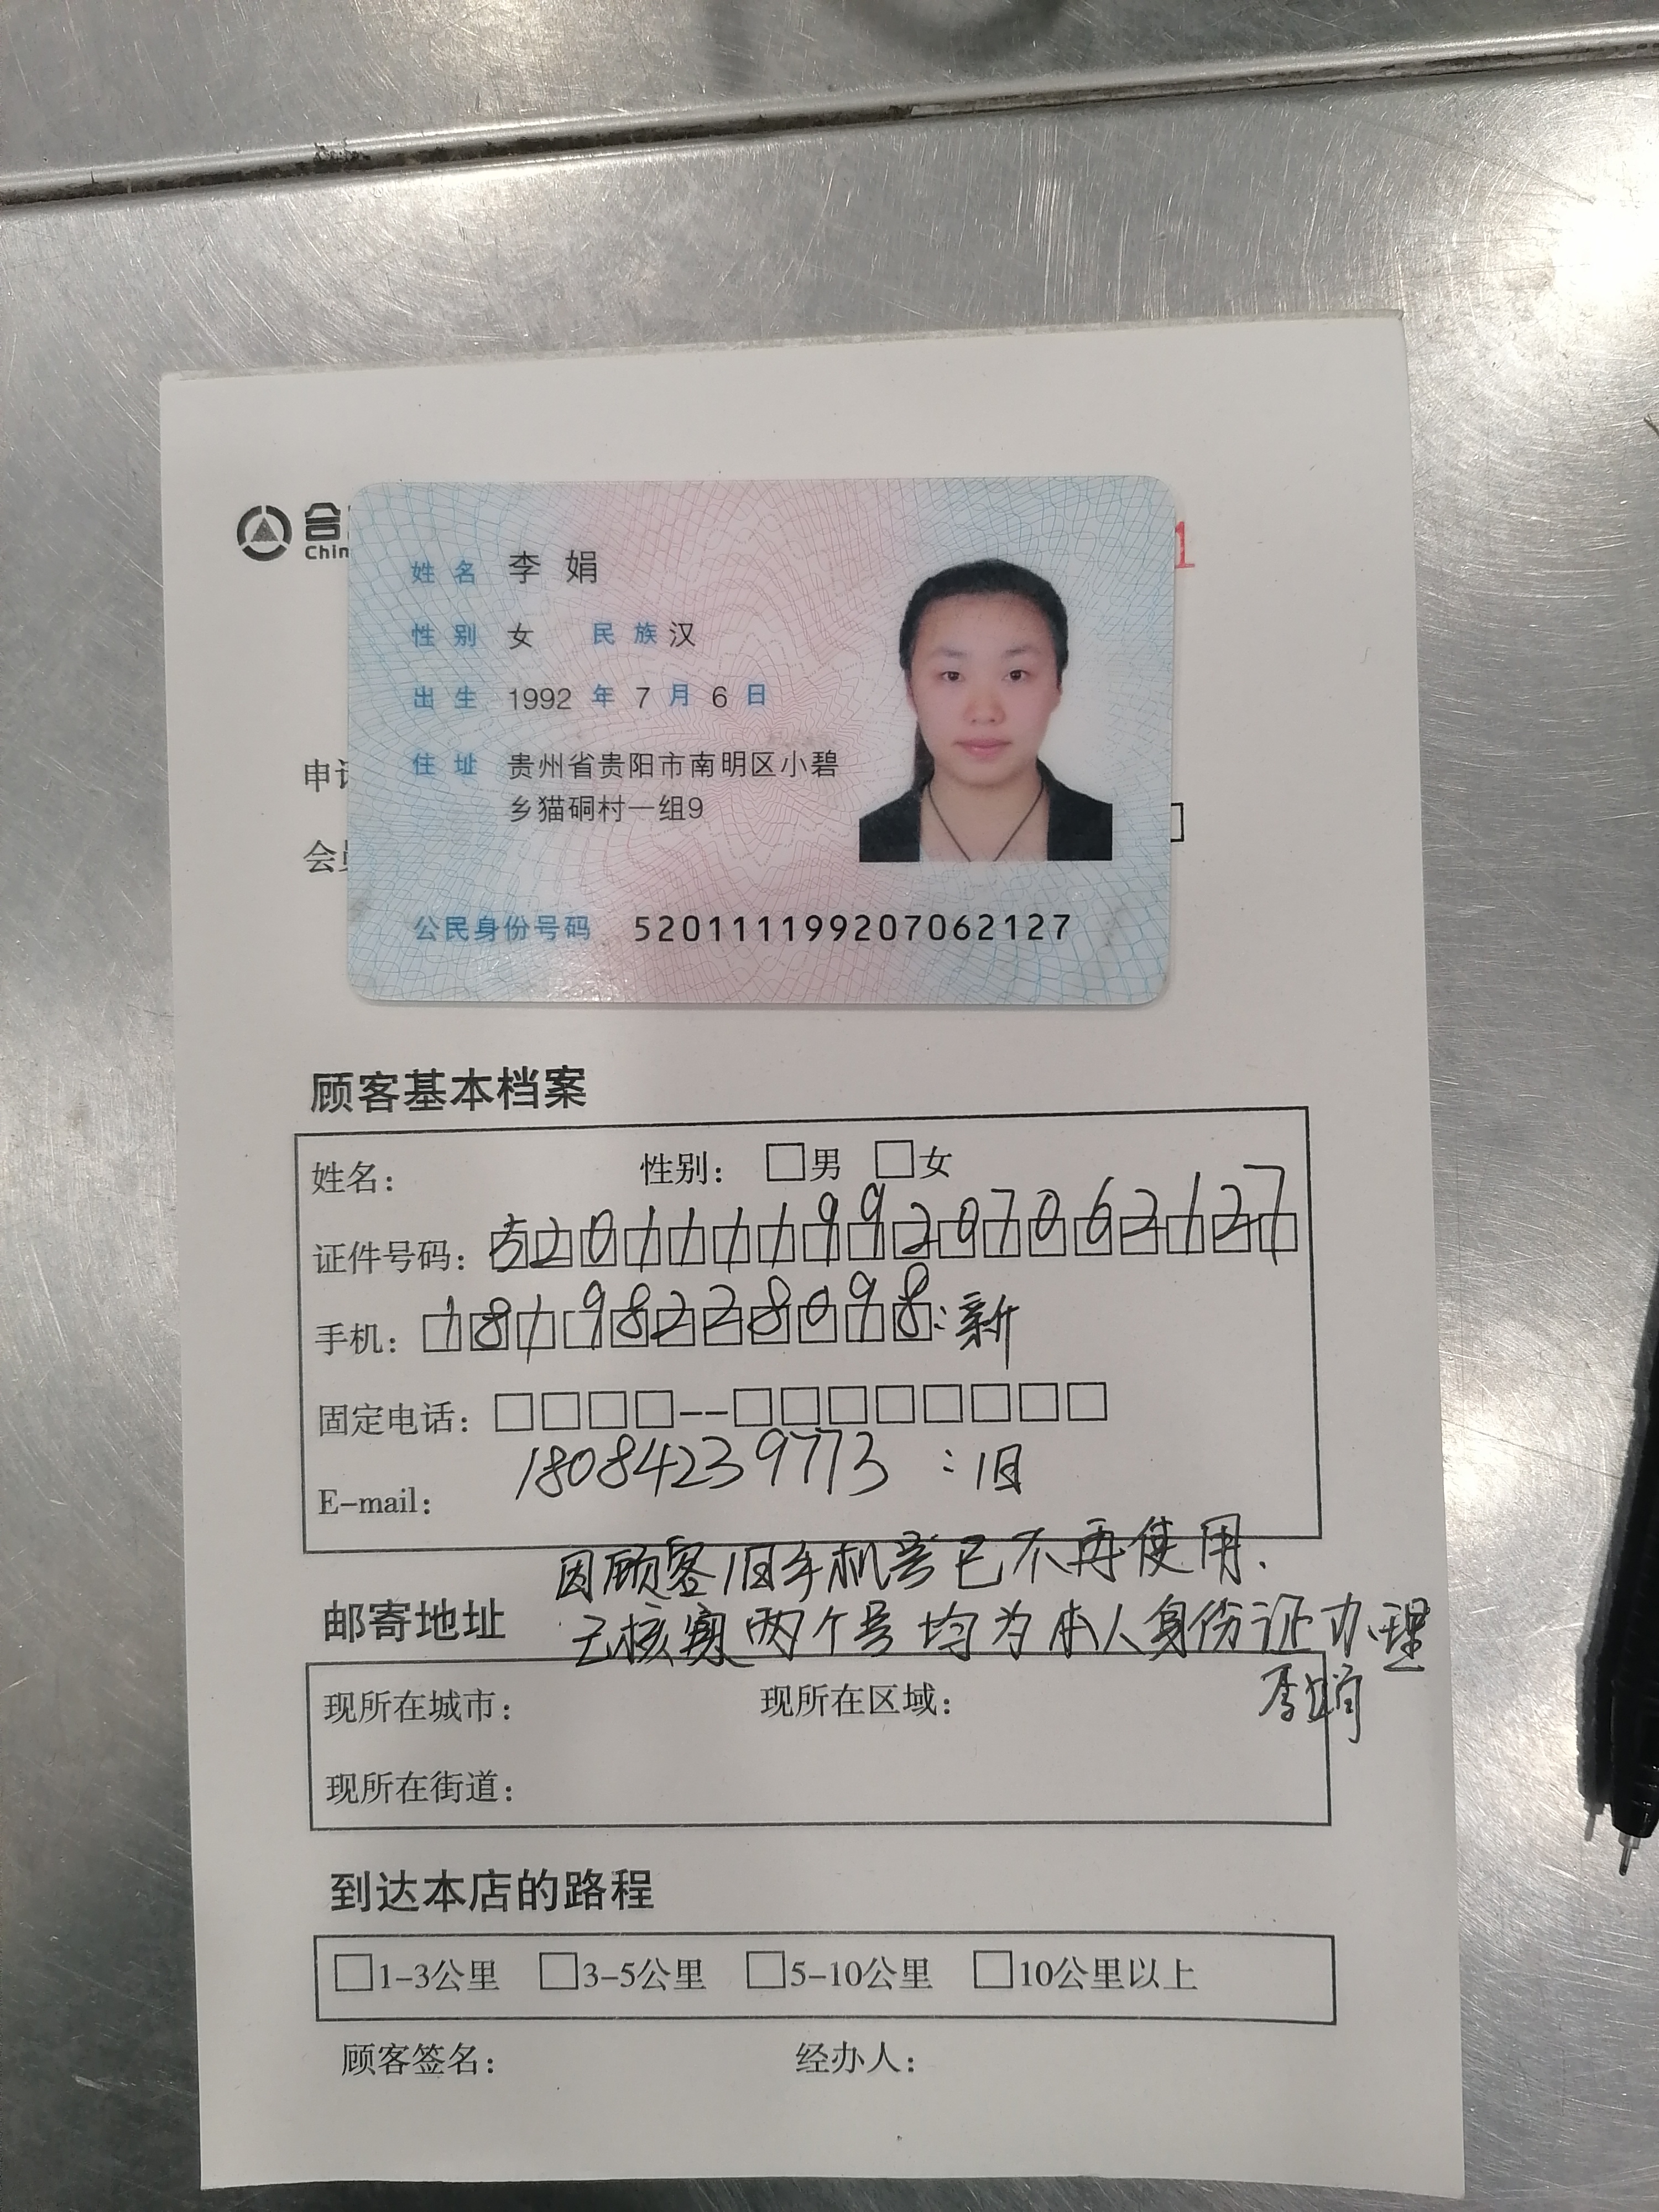 合
Chin
1
姓名 李娟
性别 女 民族 汉
出生 1992 年 7 月 6 日
住址 贵州省贵阳市南明区小碧
乡猫硐村一组9
公民身份号码 520111199207062127
申请
会员
顾客基本档案
姓名： 性别： □男 □女
证件号码：520111199207062127
手机：18198228098：新
固定电话：□□□□--□□□□□□□□
18084239773 ：旧
E-mail：
因顾客旧手机号已不再使用.
已核实两个号均为本人身份证办理
邮寄地址
李娟
现所在城市： 现所在区域：
现所在街道：
到达本店的路程
□1-3公里 □3-5公里 □5-10公里 □10公里以上
顾客签名： 经办人：